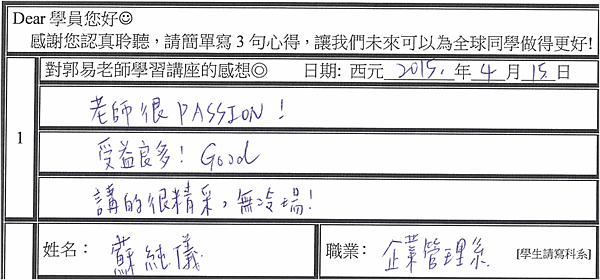 Dear 學員您好☺
感謝您認真聆聽，請簡單寫 3 句心得，讓我們未來可以為全球同學做得更好!
對郭易老師學習講座的感想◎ 日期: 西元 2015. 年 4 月 15 日
1
老師很 PASSION！
受益良多！Good
講的很精采，無冷場！
姓名： 蘇純儀 職業： 企業管理系 [學生請寫科系]